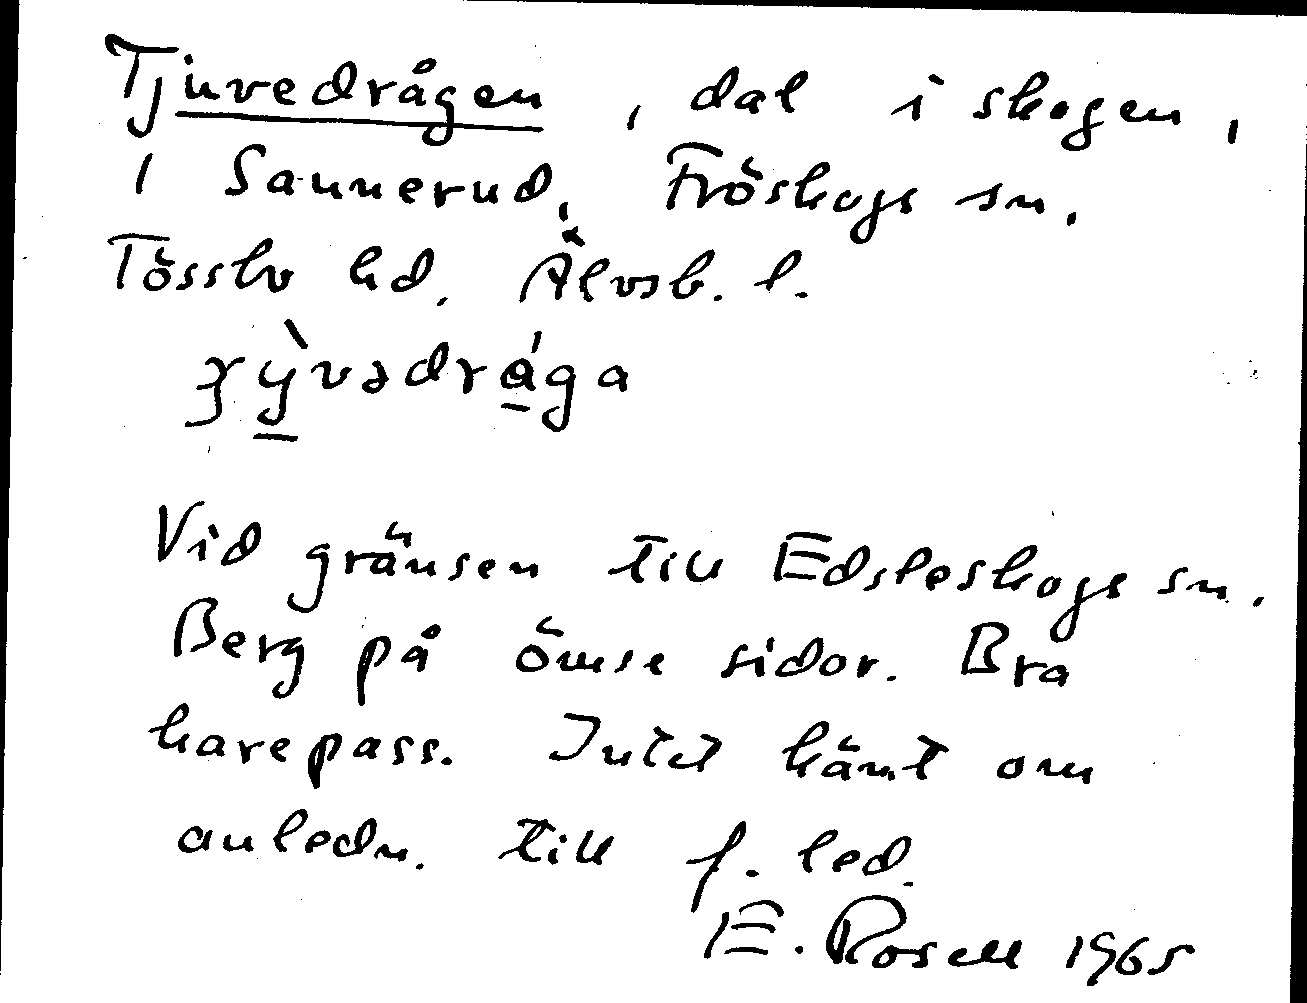 Tjuvedrågen, dal i skogen,
i Sannerud, Fröskogs sn.
Tössbo hd. Älvsb. l.
Vid gränsen till Edsleskogs sn.
Berg på ömse sidor. Bra
harepass. Intet känt om
anledn. till f. led.
E. Rosell 1965